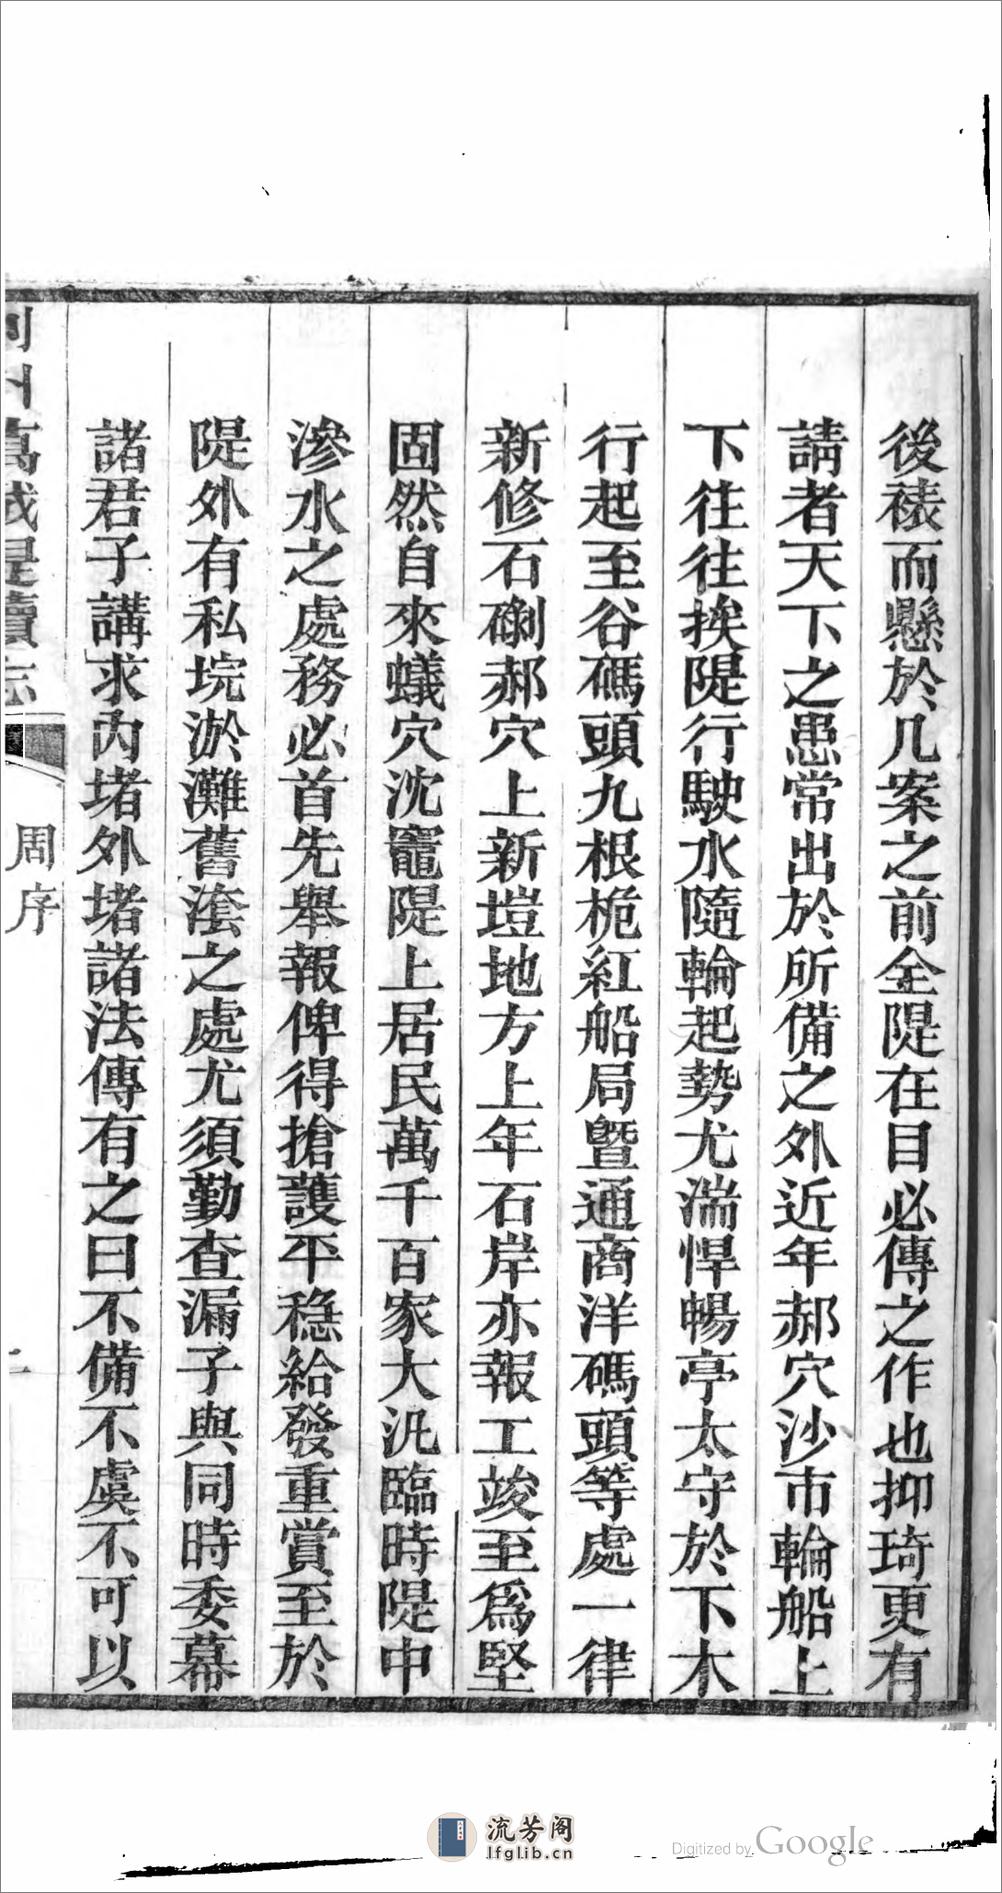 後裱而懸於几案之前全隄在目必傳之作也抑琦更有
請者天下之患常出於所備之外近年郝穴沙市輪船上
下往往挨隄行駛水隨輪起勢尤湍悍暢亭太守於下木
行起至谷碼頭九根桅紅船局曁通商洋碼頭等處一律
新修石磡郝穴上新塏地方上年石岸亦報工竣至爲堅
固然自來蟻穴沈竈隄上居民萬千百家大汛臨時隄中
滲水之處務必首先舉報俾得搶護平穩給發重賞至於
隄外有私垸淤灘舊湪之處尤須勤查漏子與同時委幕
諸君子講求內堵外堵諸法傳有之曰不備不虞不可以
荊州萬城隄續志
周序
二
流芳阁
lfglib.cn
Digitized by Google